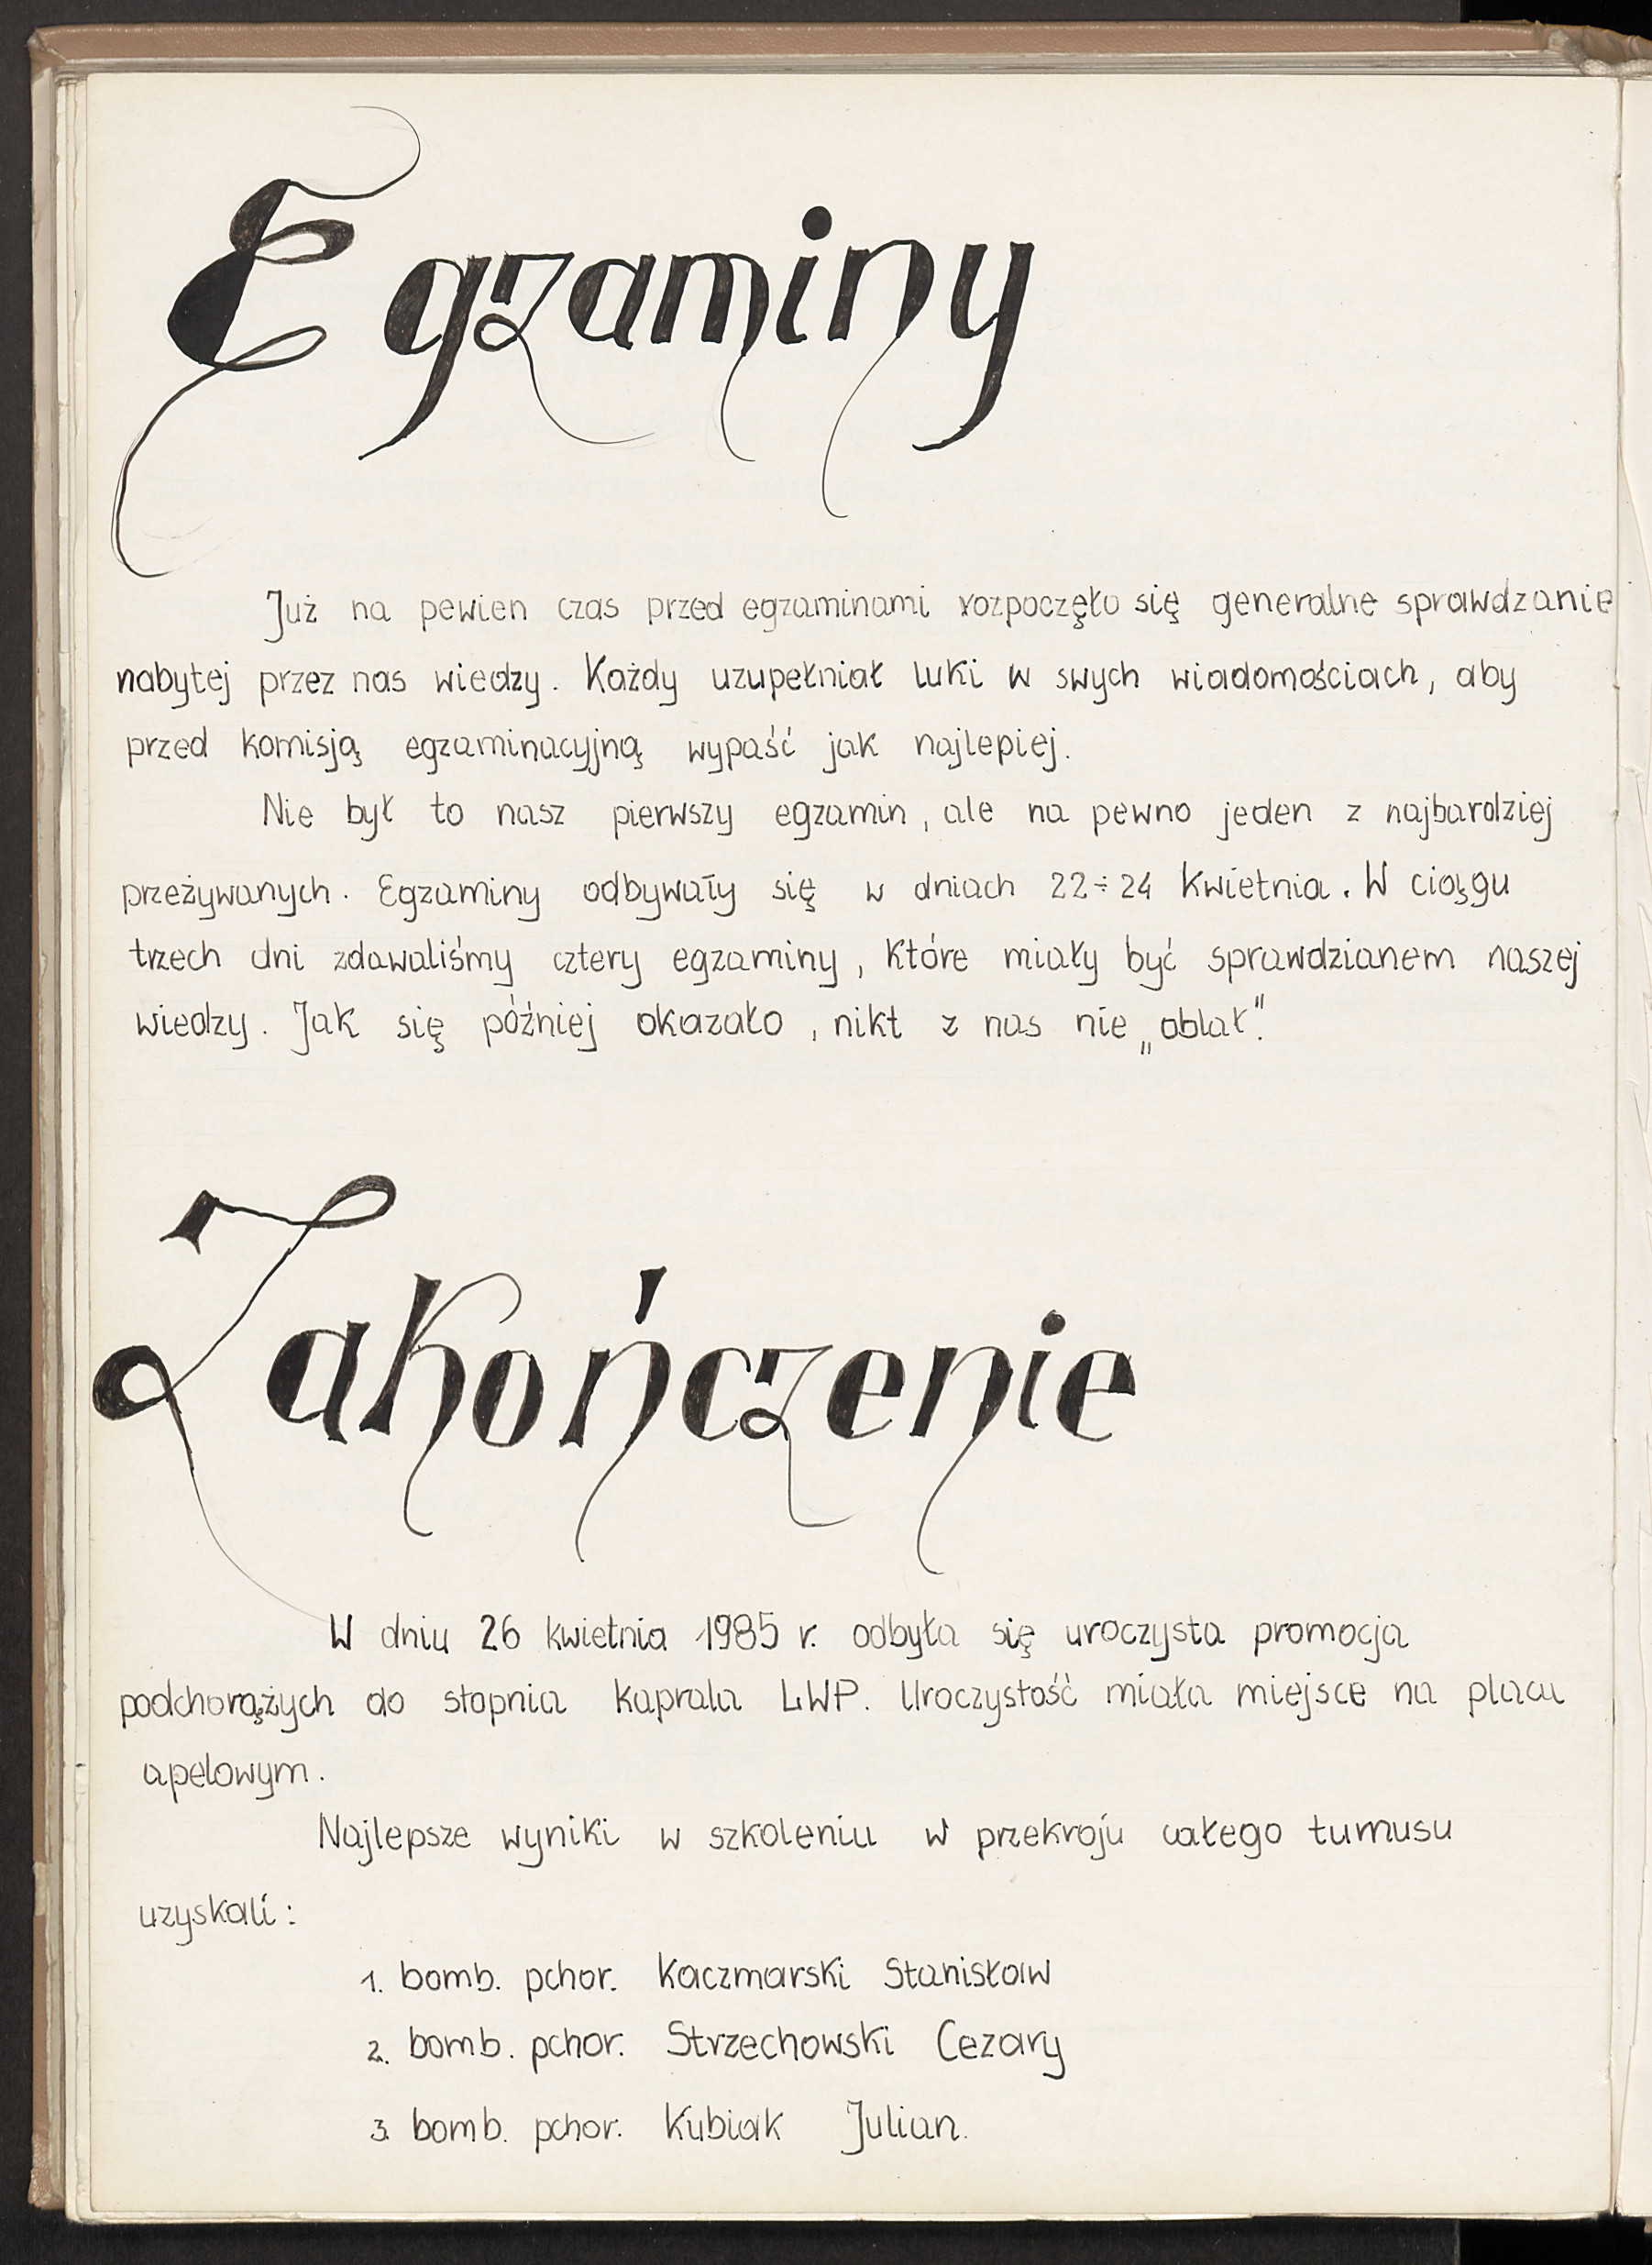 Egzaminy
Już na pewien czas przed egzaminami rozpoczęło się generalne sprawdzanie
nabytej przez nas wiedzy. Każdy uzupełniał luki w swych wiadomościach, aby
przed komisją egzaminacyjną wypaść jak najlepiej.
Nie był to nasz pierwszy egzamin, ale na pewno jeden z najbardziej
przeżywanych. Egzaminy odbywały się w dniach 22÷24 kwietnia. W ciągu
trzech dni zdawaliśmy cztery egzaminy, które miały być sprawdzianem naszej
wiedzy. Jak się później okazało, nikt z nas nie „oblał".
Zakończenie
W dniu 26 kwietnia 1985 r. odbyła się uroczysta promocja
podchorążych do stopnia kaprala LWP. Uroczystość miała miejsce na placu
apelowym.
Najlepsze wyniki w szkoleniu w przekroju całego turnusu
uzyskali:
1. bomb. pchor. Kaczmarski Stanisław
2. bomb. pchor. Strzechowski Cezary
3. bomb. pchor. Kubiak Julian.